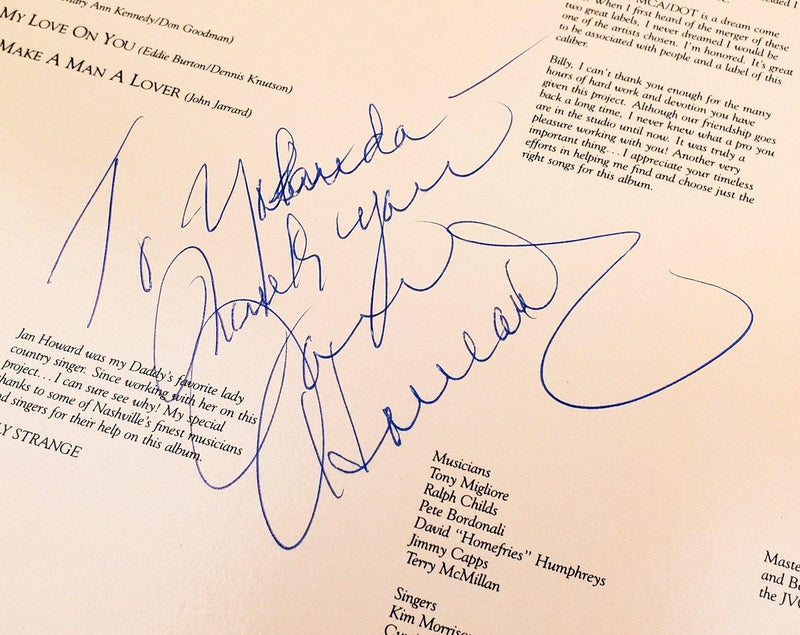 Mary Ann Kennedy/Don Goodman)
MY LOVE ON YOU (Eddie Burton/Dennis Knutson)
MAKE A MAN A LOVER (John Jarrard)
MCA/DOT is a dream come
When I first heard of the merger of these
two great labels, I never dreamed I would be
one of the artists chosen. I'm honored. It's great
to be associated with people and a label of this
caliber.
Billy, I can't thank you enough for the many
hours of hard work and devotion you have
given this project. Although our friendship goes
back a long time, I never knew what a pro you
are in the studio until now. It was truly a
pleasure working with you! Another very
important thing... I appreciate your timeless
efforts in helping me find and choose just the
right songs for this album.
To Yolanda
Thank you
Jan
Howard
Jan Howard was my Daddy's favorite lady
country singer. Since working with her on this
project... I can sure see why! My special
thanks to some of Nashville's finest musicians
and singers for their help on this album.
LY STRANGE
Musicians
Tony Migliore
Ralph Childs
Pete Bordonali
David "Homefries" Humphreys
Jimmy Capps
Terry McMillan
Singers
Kim Morriso
Maste
and Be
the JVC